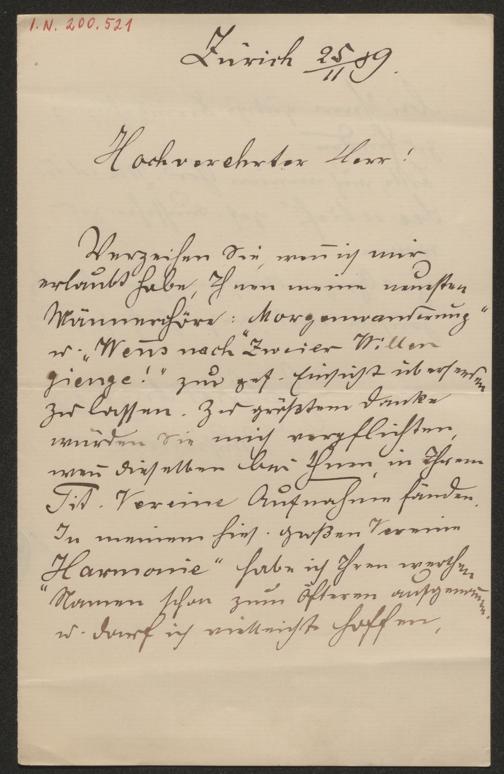 I.N. 200.521
Zürich 25/11 89.
Hochverehrter Herr!
Verzeihen Sie, wen̄ ich mir
erlaubt habe, Ihnen meine neuesten
Männerchöre: „Morgenwanderung"
u. „Wen̄s nach Zweier Willen
gienge!" zur gef. Einsicht übersenden
zu lassen. Zu größtem Danke
würden Sie mich verpflichten,
wen̄ dieselben bei Ihnen, in Ihrem
Tit. Vereine Aufnahme fänden.
In meinem hies. großen Vereine
„Harmonie" habe ich Ihren werthen
Namen schon zum öfteren
u. darf ich vielleicht hoffen,